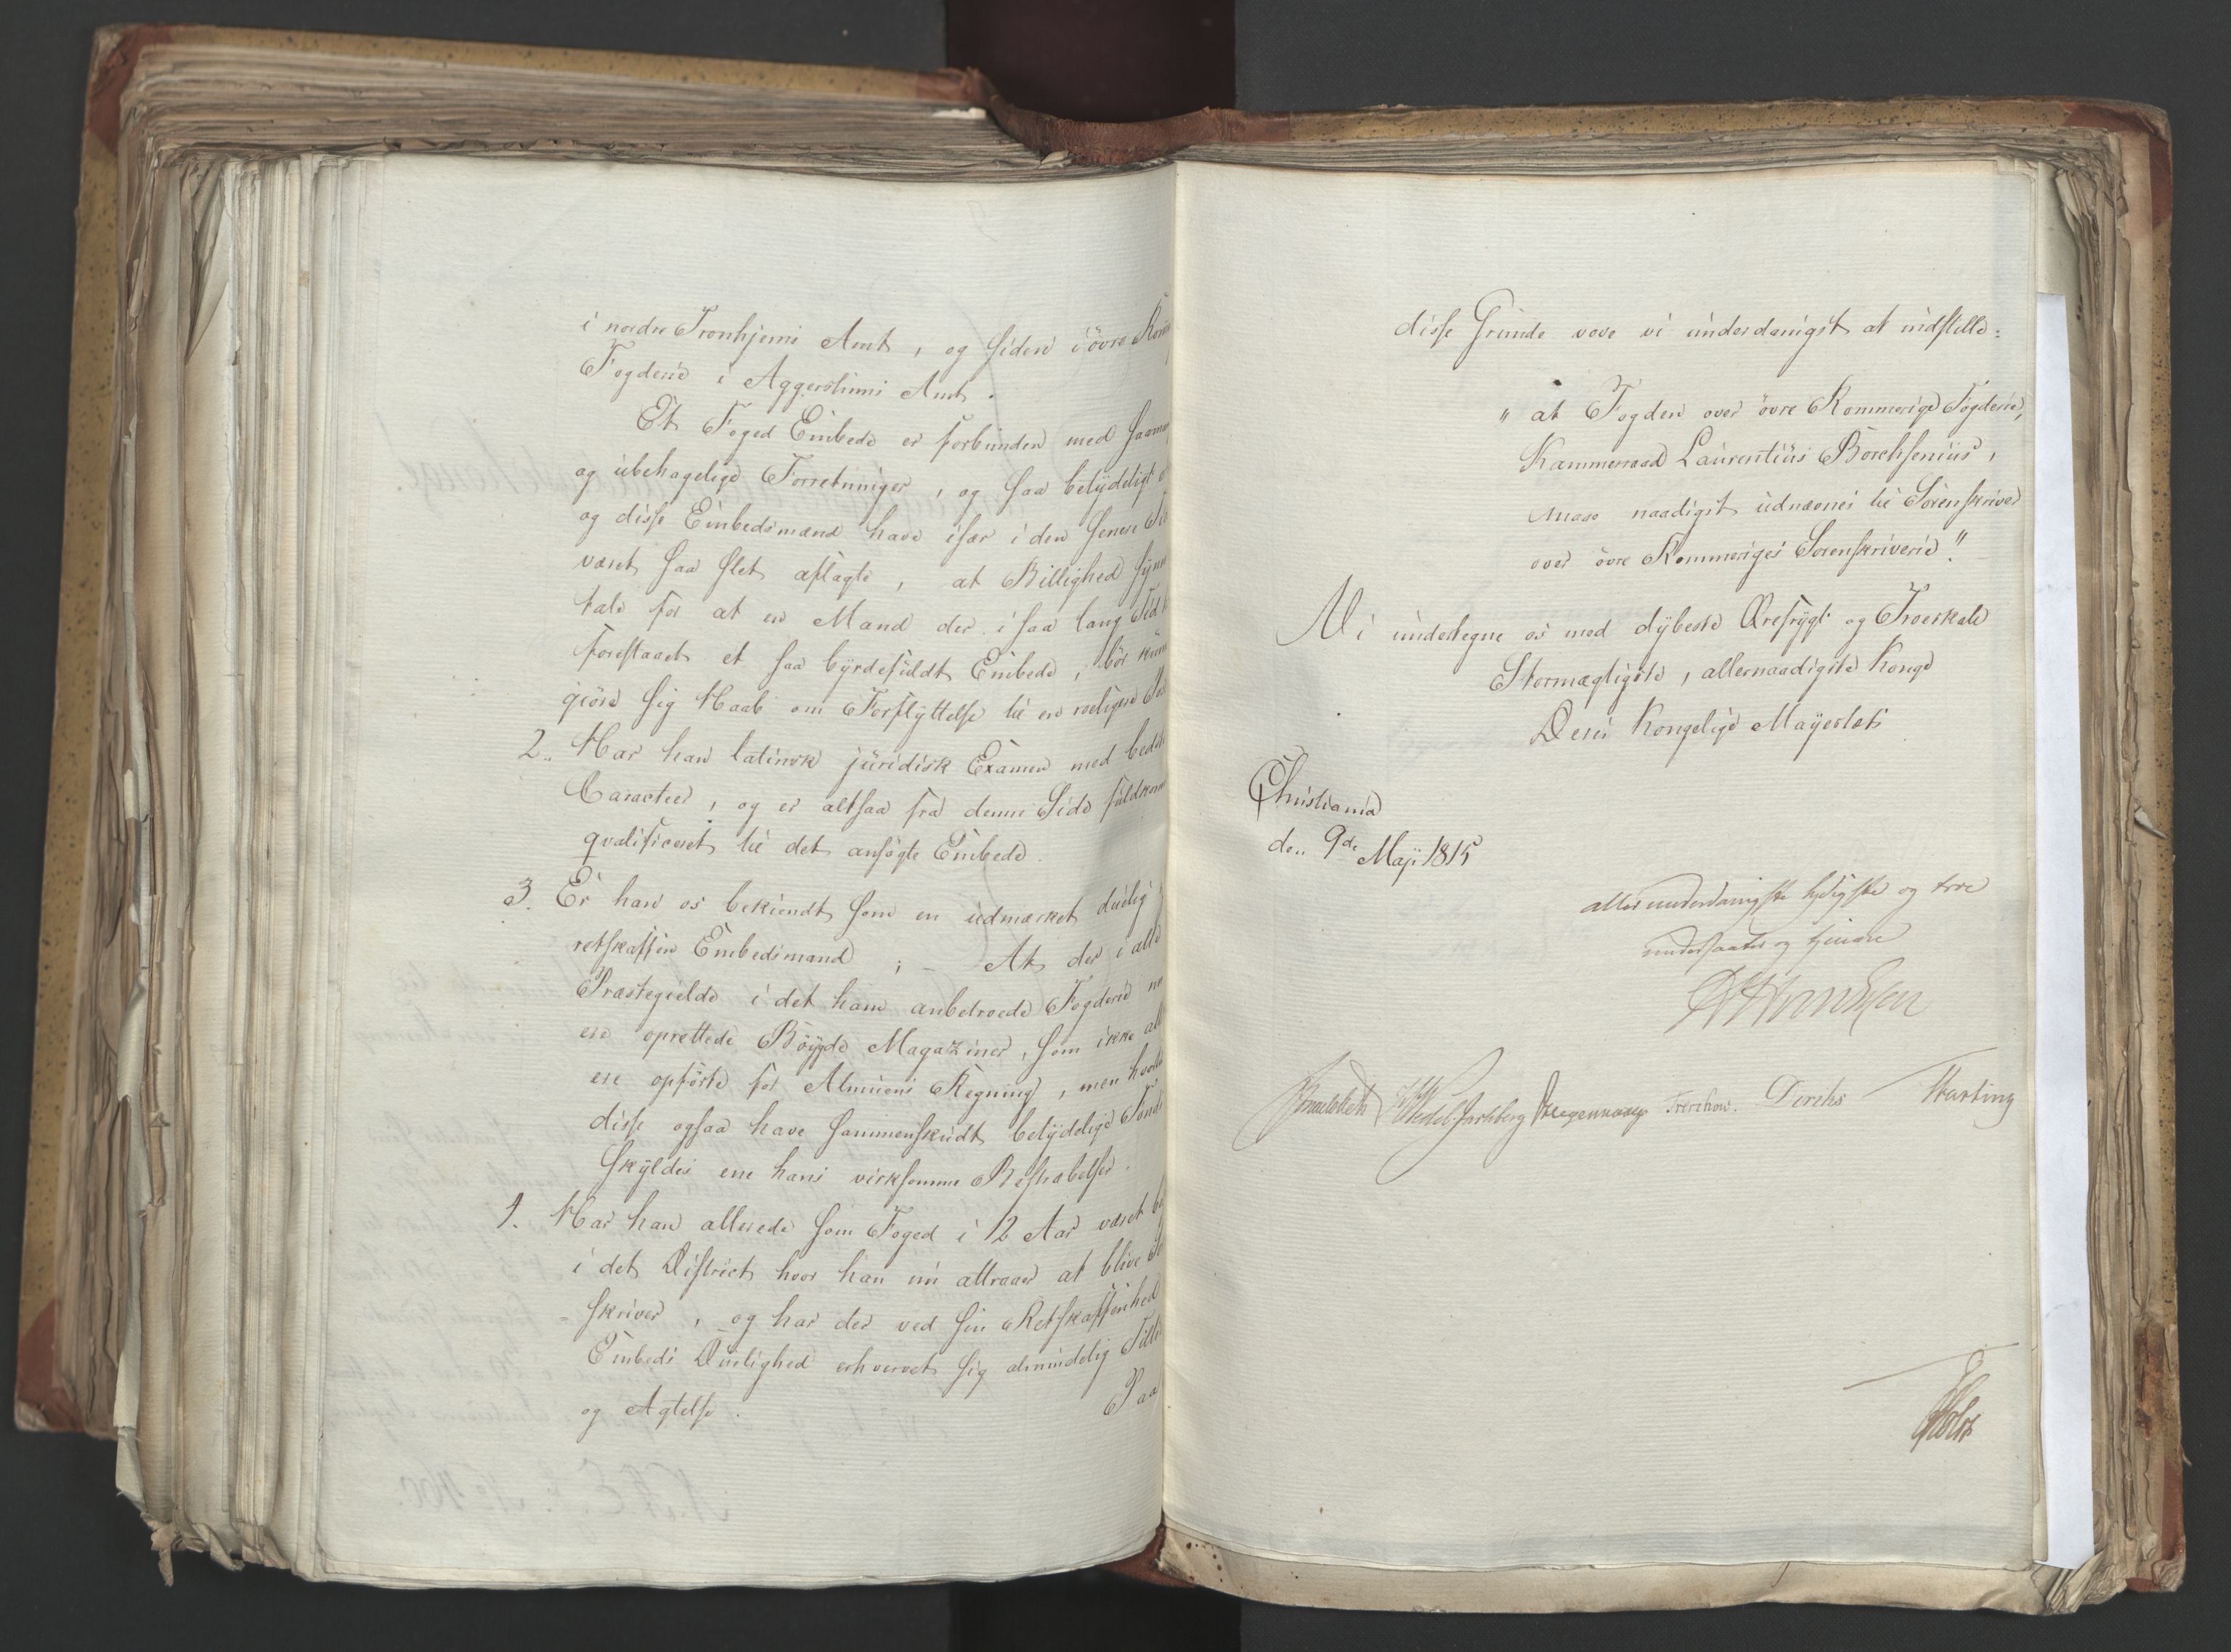 i nordre Tronhjems Amt, og siden i övre
Fogderie i Aggershuus Amt.
Et Foged Embede er forbunden med
og ubehagelige Forretninger, og saa betydeligt
og disse Embedsmænd have især i den senere
været saa slet aflagte, at Billighed synes
tale for at en Mand der i saa lang Tid
forestaaet et saa byrdefuldt Embede, bör
giöre sig Haab om Forflyttelse til en roeligere
2. Har han latinsk juridisk Examen med bedste
Caracteer, og er altsaa fra denne Side fuldkommen
qvalificeret til det ansögte Embede.
3. Er han os bekiendt som en udmærket duelig
retskaffen Embedsmand; – At der i alle
Præstegielde i det ham anbetroede Fogderie
ere oprettede Böygde Magaziner, som ikke
ere opförte for Almuens Regning, men
disse ogsaa have sammenskudt betydelige
skyldes ene hans virksomme Bestræbelser.
4. Har han allerede som Foged i 12 Aar været
i det District hvor han nu attraaer at blive
skriver, og har der ved sin Retskaffenhed
Embeds Duelighed erhvervet sig almindelig
og Agtelse.
Paa
disse Grunde vove vi underdanigst at indstille:
"at Fogden over övre Rommerige Fogderie,
Kammerraad Laurentius Borchsenius,
maae naadigst udnævnes til Sorenskriver
over övre Rommeriges Sorenskriverie."
Vi undertegne os med dybeste Ærefrygt og Troeskab
Stormægtigste, allernaadigste Konge
Deres Kongelige Mayestæts
Christiania
den 9de Maji 1815
allerunderdanigste lydigste og troe
undersaatter og tjenere
Sommerhielm Wedel Jarlsberg Treschow. Diriks Hartung
Holst